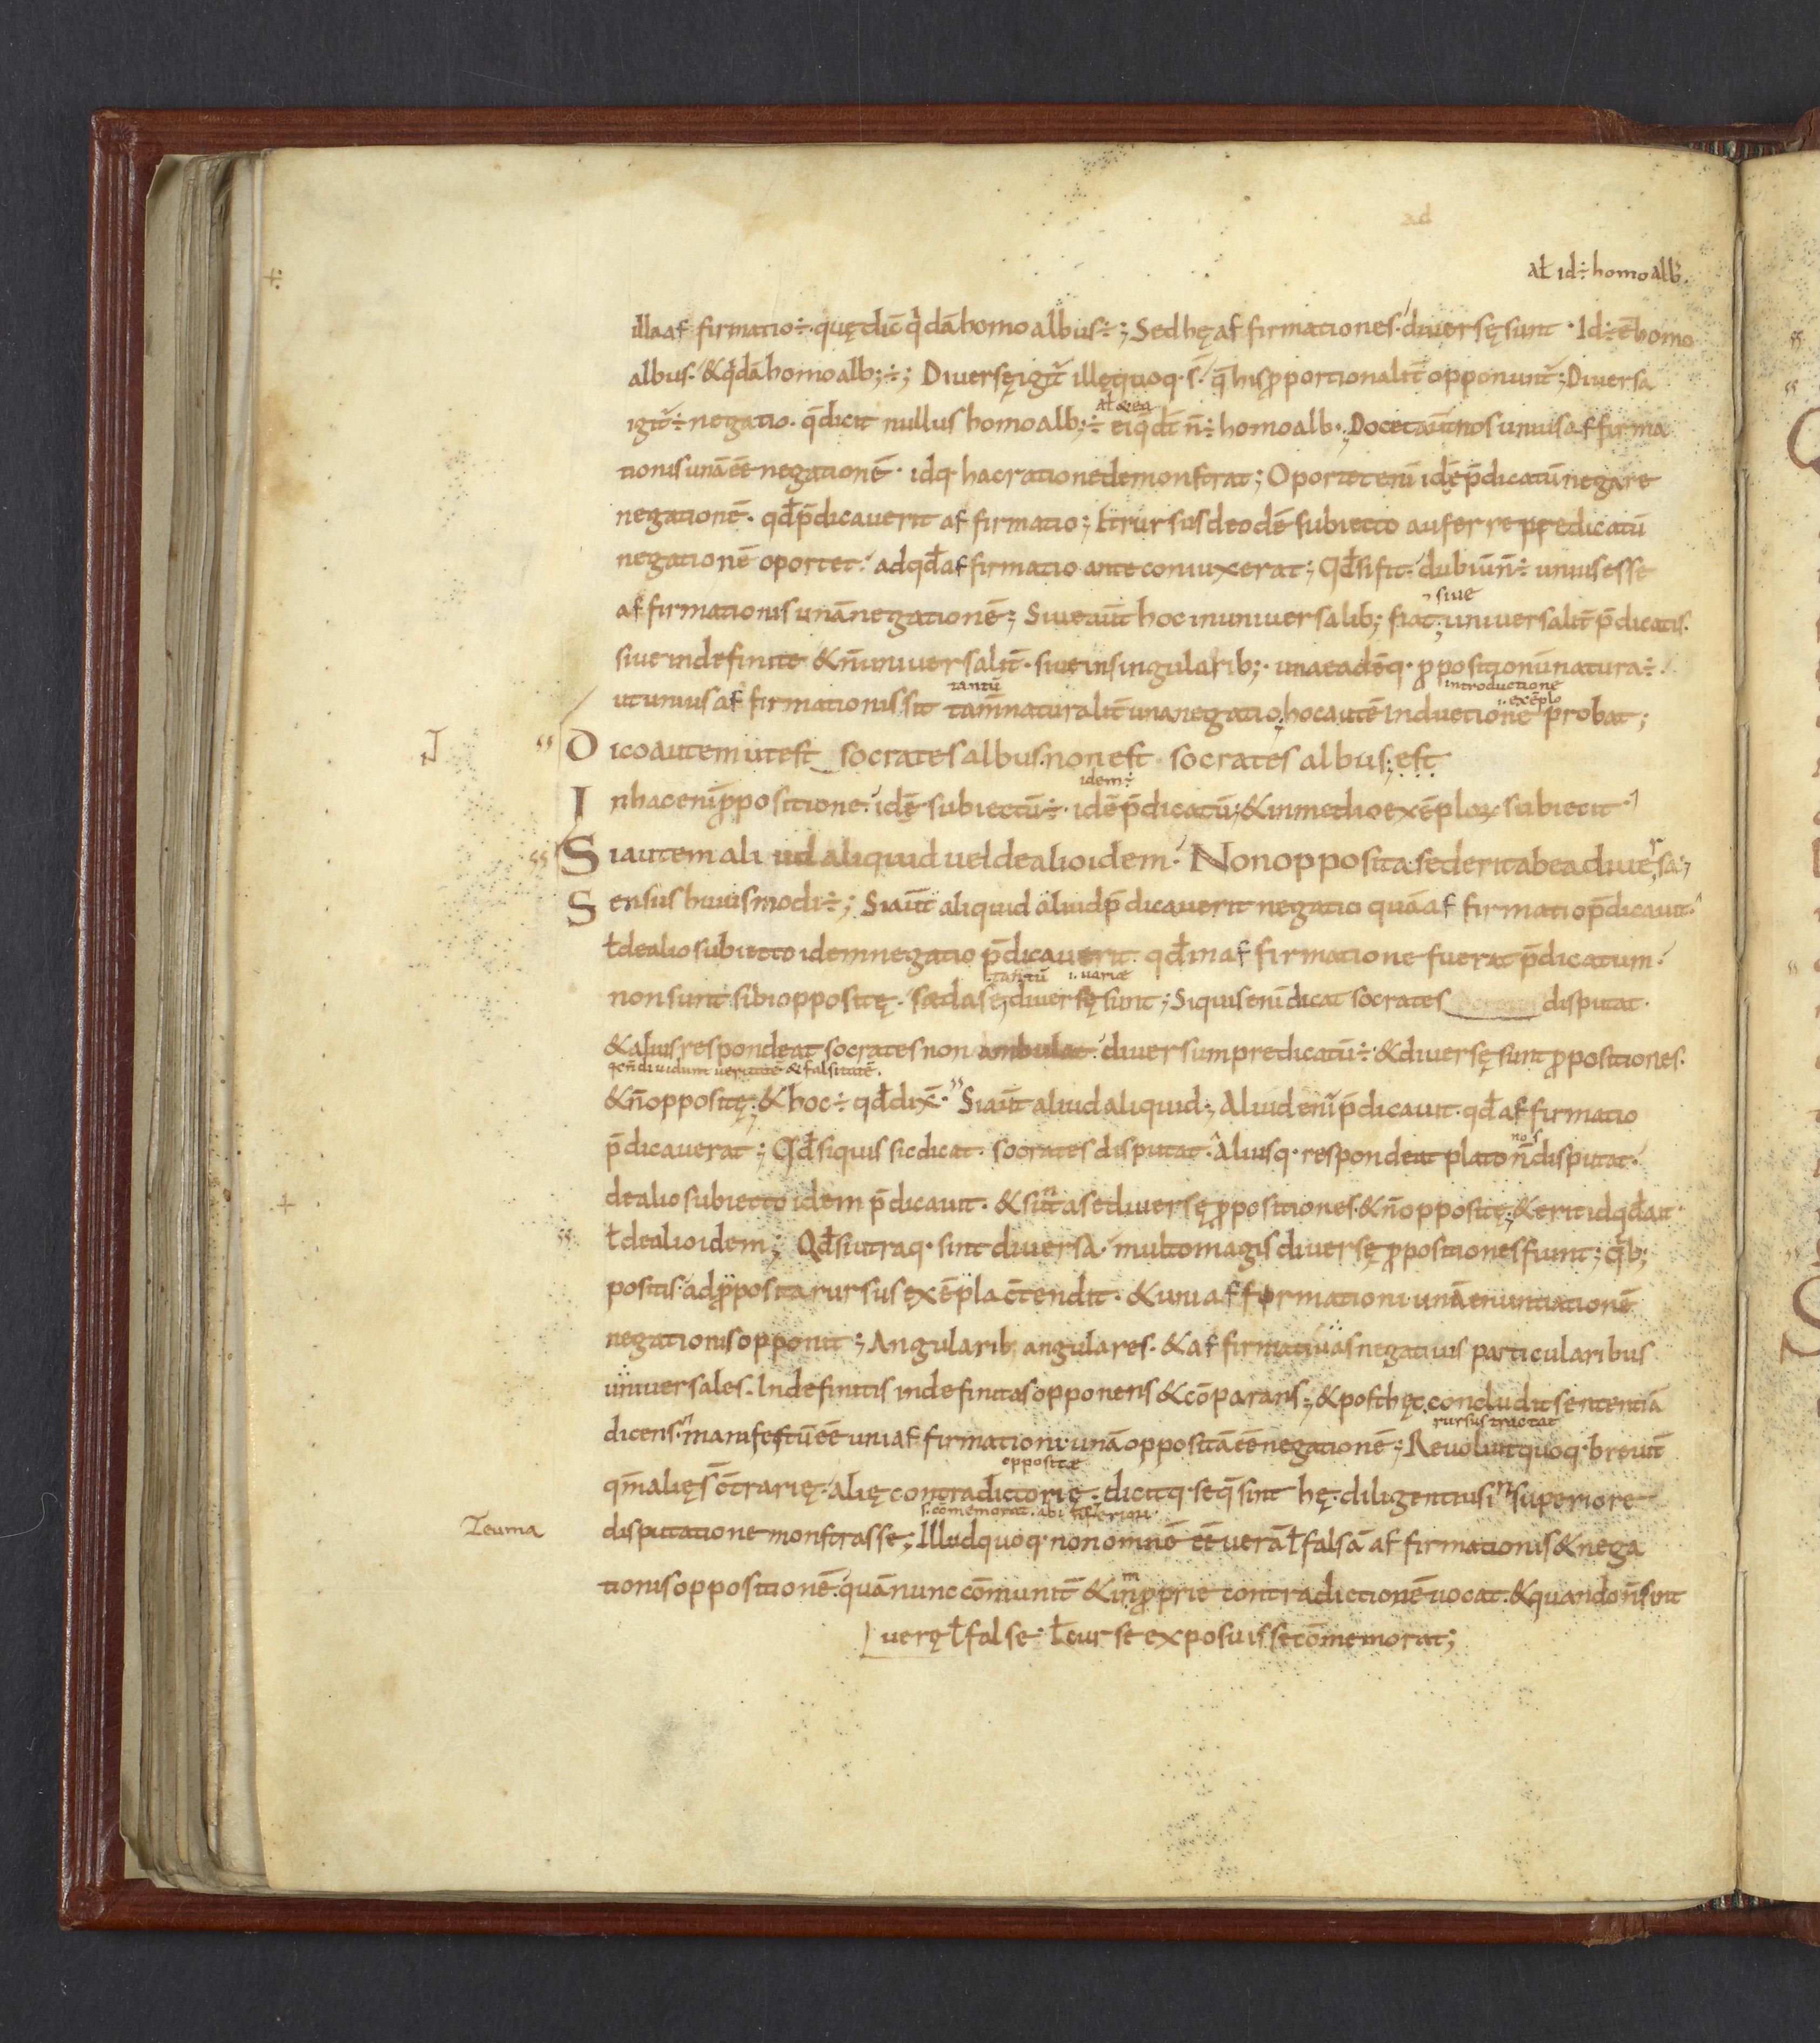 ad
aƚ id÷ homo alb᾽.
illa affirmatio÷· quę dic̄ q̇dā homo albus÷; Sed hę affirmationes· diuersę sunt · Id÷ ē homo
albus· & q̇dā homo alb;÷; Diuersę igit̄ illę quoq· s̄· q̄ his ꝓportionalit̄ opponunt̄; Diuersa
aƚ & ea
igit̄÷ negatio· q̄ dicit nullus homo alb;÷ ei q̄ dt̄ n̄÷ homo alb·; Docet aut̄ nos unius affirma
tionis unā eē negationē· idq hac ratione demonstrat; Oportet eni idē p̄dicatū negare
negationē· qđ p̄dicauerit affirmatio; Et rursus de odē subiecto auferre predicatū
negationē oportet· ad qđ affirmatio ante coniuxerat; Qđ si fit· dubiū n̄÷ unius esse
siue
affirmationis unā negationē; Siue aut̄ hoc in uniuersalib; fiat; uniuersalit̄ p̄dicatis·
siue indefinite & n̄ uniuersalit̄· siue in singularib;· una eadēq· ꝓpositionū natura÷
tantū introductione
i. exēplo
ut unius affirmationis sit tam̄ naturalit̄ una negatio; hoc autē inductione probat;
Dico autem ut est socrates albus· non est socrates albus; est
idem÷
In hac eni ꝓpositione· idē subiectū÷· idē p̄dicatū; & in medio exēplo subiecit·
Si autem ali ud aliquid uel de alio idem· Non opposita sed erit ab ea diuersa;
Sensus huiusmodi÷; Si aut̄ aliquid aliud p̄dicauerit negatio quā affirmatio p̄dicauit·
ƚ de alio subiecto idem negatio p̄dicauerit· qđ in affirmatione fuerat p̄dicatum·
tantū i. uariae
non sunt sibi oppositę· sed a sę diuersę sunt; Si quis eni dicat socrates disputat·
& alius respondeat socrates non ambulat· diuersum predicatū÷· & diuersę sunt ꝓpositiones·
q̄ n̄ diuidunt ueritatē & falsitatē·
& n̄ oppositę; & hoc÷ qđ dix̄· Si aut̄ aliud aliquid; Aliud eni p̄dicauit· qđ affirmatio
non s
p̄dicauerat; Qđ si quis sic dicat· socrates disputat· Aliusq· respondeat plato n̄ disputat·
de alio subiecto idem p̄dicauit· & sunt a se diuersę ꝓpositiones· & n̄ oppositę; & erit id qđ ait·
ƚ de alio idem; Qđ si utraq· sint diuersa· multo magis diuersę ꝓpositiones fiunt; q̇b;
positis· ad ꝓposita rursus exēpla c̄tendit· & uni affirmationi unā enuntiationē
negationis opponit; Angularib; angulares· & affirmatiuas negatiuis particularibus
uniuersales· Indefinitis indefinitas opponens & cōparans; & post hęc concludit sententiā
rursus tractat
dicens· manifestū eē uni affirmationi unā oppositā eē negationē; Reuoluit quoq· breuit̄
oppositae
qm̄ alię s̄ c̄trarię· alię contradictorię· dicitq· se q̄ sint hę· diligentius in superiore
Zeuma
disputatione monstrasse; Illud quoq· non omnē eē uerā ƚ falsā affirmationis & nega
tionis oppositionē· quā nunc cōmunit̄ & inproprie contradictionē uocat· & quando n̄ sint
uerę ƚ false· ƚ cur se exposuisse cōmemorat;